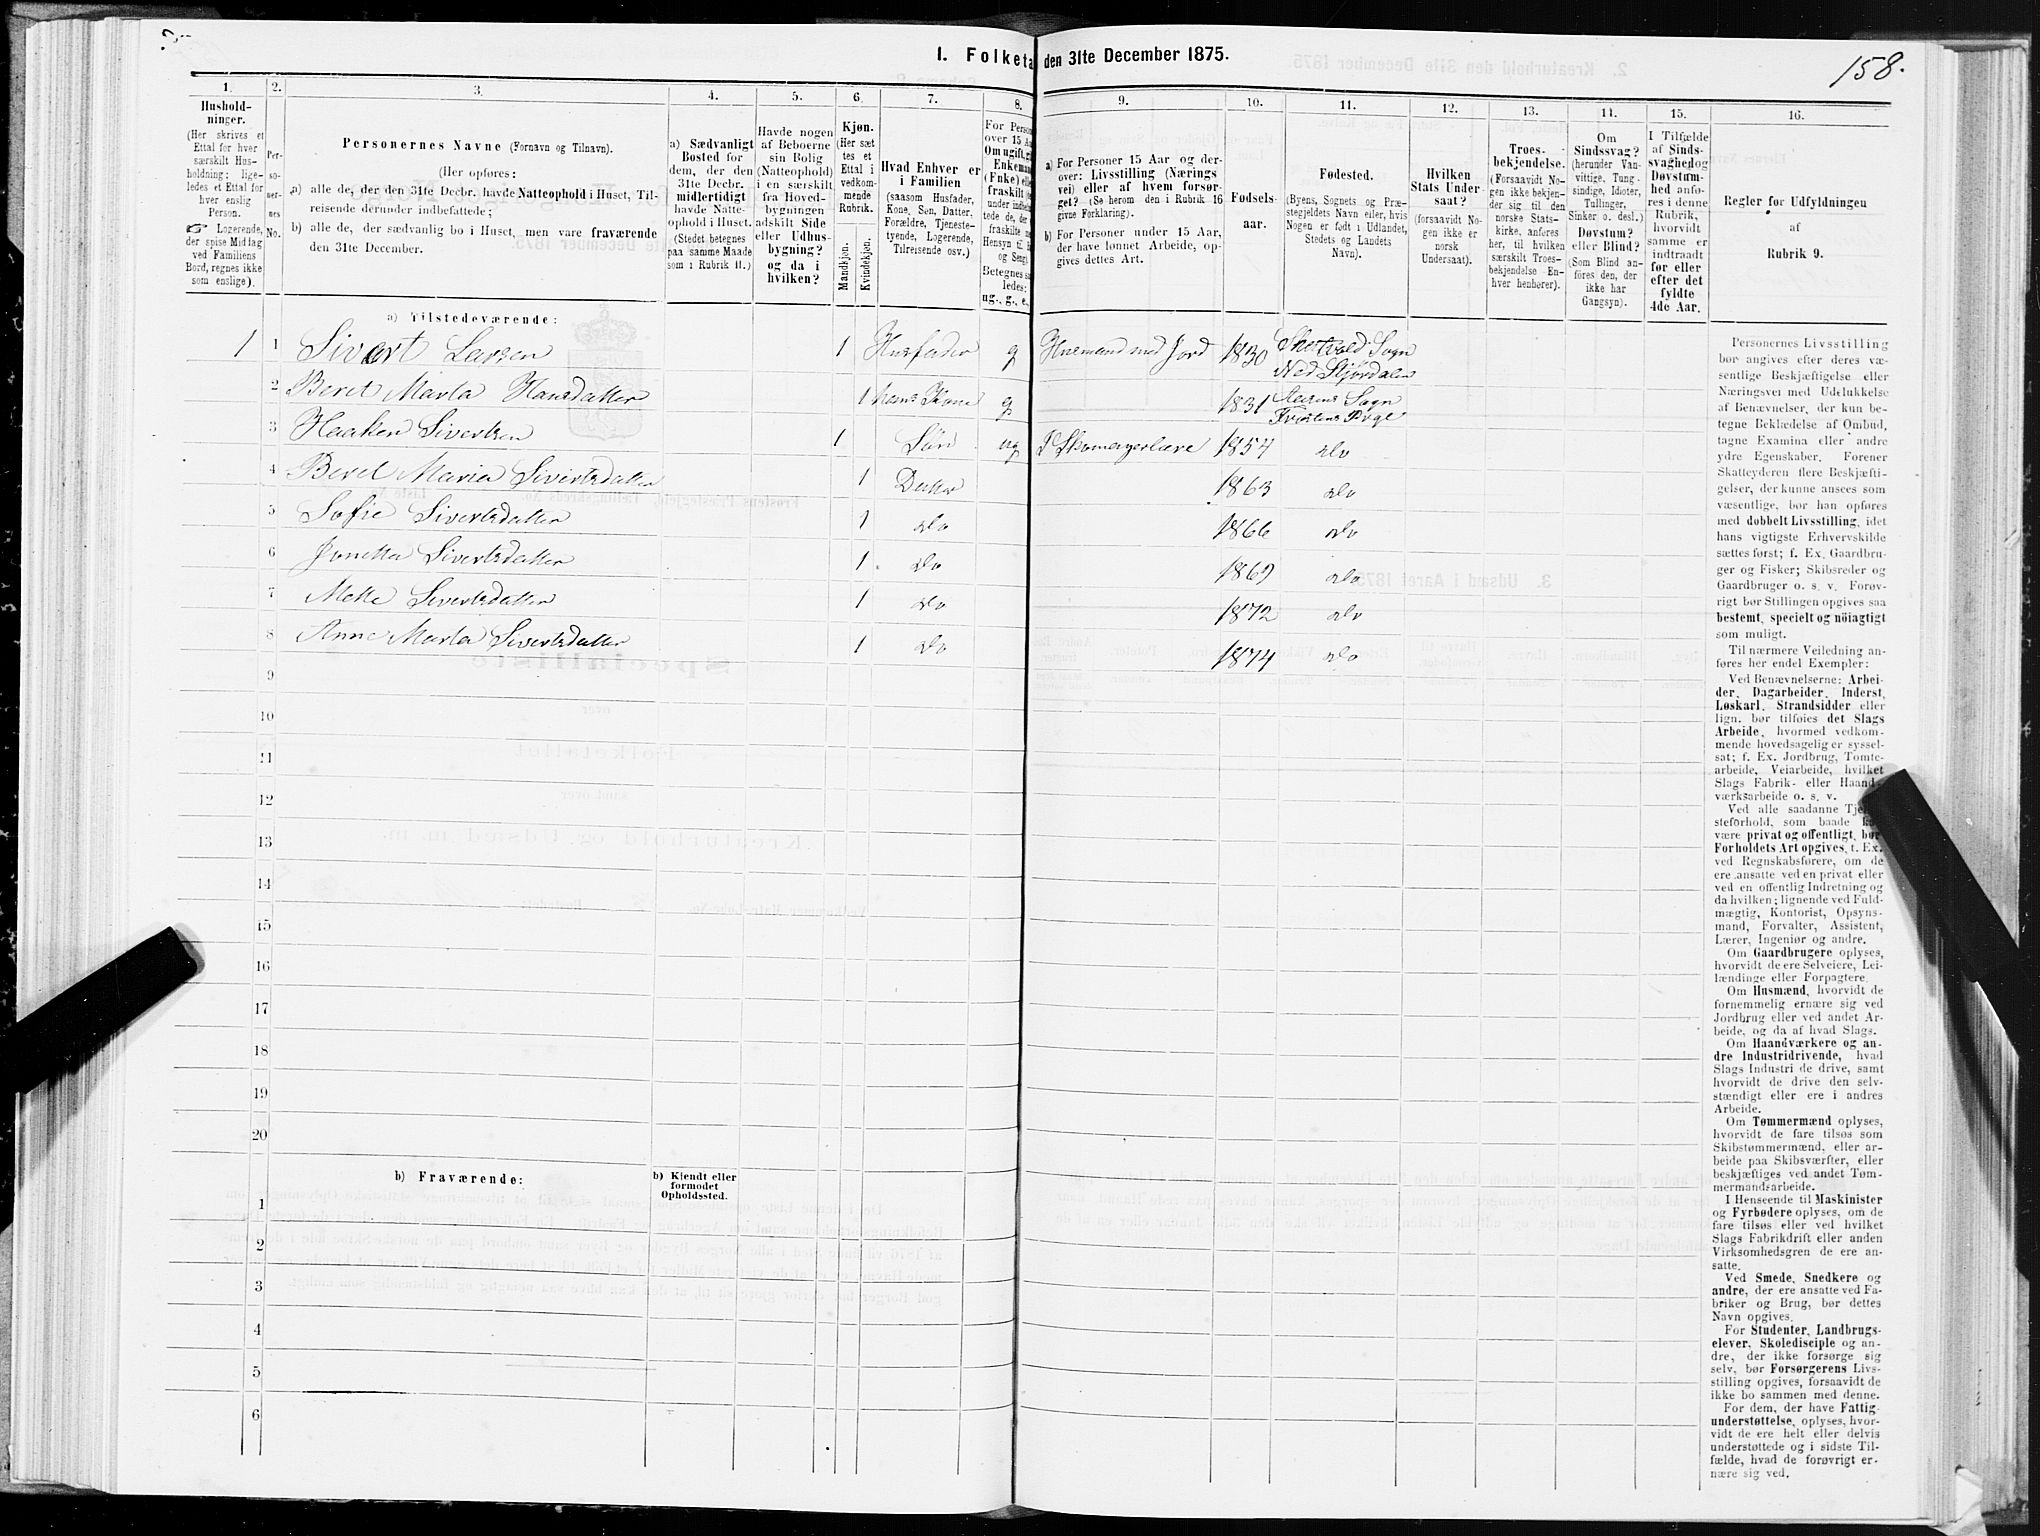 158.
I. Folketa den 31te December 1875.
1. 2. 3. 4. 5. 6. 7. 8. 9. 10. 11. 12. 13. 11. 15. 16.
Hushold-
ninger.
(Her skrives et
Ettal for hver
særskilt Hus-
holdning; lige-
ledes et Ettal for
hver enslig
Person.
☞ Logerende,
der spise Middag
ved Familiens
Bord, regnes ikke
som enslige).
Per-
so-
ner-
nes
No.
Personernes Navne (Fornavn og Tilnavn).
(Her opføres:
a) alle de, der den 31te Decbr. havde Natteophold i Huset, Til-
reisende derunder indbefattede;
b) alle de, der sædvanlig bo i Huset, men vare fraværende
den 31te December.
a) Sædvanligt
Bosted for
dem, der den
31te Decbr.
midlertidigt
havde Natte-
ophold i Huset.
(Stedet betegnes
paa samme Maade
som i Rubrik 11.)
Havde nogen
af Beboerne
sin Bolig
(Natteophold)
i en særskilt
fra Hoved-
bygningen
adskilt Side
eller Udhus-
bygning?
og da i
hvilken?
Kjøn.
(Her sæt
tes et
Ettal i
vedkom-
mende
Rubrik.
Mandkjøn.
Kvindekjøn.
Hvad Enhver er
i Familien
(saasom Husfader,
Kone, Søn, Datter,
Forældre, Tjeneste-
tyende, Logerende,
Tilreisende osv.)
For Perso
over 15 Aa
Om ugift, g
Enkeman
(Enke) elle
fraskilt
Hensyn til
og Seng)
Betegnes s
ledes:
ug., g., e.,
a) For Personer 15 Aar og der-
over: Livsstilling (Nærings
vei) eller af hvem forsør-
get? (Se herom den i Rubrik 16
givne Forklaring).
b) For Personer under 15 Aar,
der have lønnet Arbeide, op-
gives dettes Art.
Fødsels-
aar.
Fødested.
(Byens, Sognets og Præ-
stegjeldets Navn eller, hvis
Nogen er født i Udlandet,
Stedets og Landets
Navn).
Hvilken
Stats Under-
saat?
(forsaavidt No-
gen ikke er
norsk
Undersaat).
Troes-
bekjendelse.
(Forsaavidt No-
gen ikke bekjen-
der sig til den
norske Stats-
kirke, anføres
her, til hvilken
særskilt Troes-
bekjendelse En-
hver henhører).
Om
Sindssvag?
(herunder Van-
vittige, Tung-
sindige, Idioter,
Tullinger,
Sinker o. desl.)
Døvstum?
eller Blind?
(Som Blind an-
føres den, der
ikke har
Gangsyn).
I Tilfælde
af Sinds-
svaghed og
Døvstum-
hed anfø-
res i denne
Rubrik,
hvorvidt
samme er
indtraadt
før eller
efter det
fyldte
4de Aar.
Regler for Udfyldningen
af
Rubrik 9.
a) Tilstedeværende:
1 1 Sivert Larsen 1 Husfader g Husmand med Jord 1830 Skatvold Sogn
Ned Stjørdalen
2 Beret Marta Hansdatter 1 hans Kone g 1831 Aasens Sogn
Frostens Prgl
3 Haaken Sivertsen 1 Søn ug I Skomagerlære 1854 do
4 Beret Maria Sivertsdatter 1 Datter 1863 do
5 Sofie Sivertsdatter 1 do 1866 do
6 Jonetta Sivertsdatter 1 do 1869 do
7 Mette Sivertsdatter 1 do 1872 do
8 Anne Marta Sivertsdatter 1 do 1874 do
9
10
11
12
13
14
15
16
17
18
19
20
b) Fraværende: b) Kjendt eller
formodet
Opholdssted.
1
2
3
4
5
6
Personernes Livsstilling
bør angives efter deres væ-
sentlige Beskjæftigelse eller
Næringsvei med Udelukkelse
af Benævnelser, der kun be-
tegne Beklædelse af Ombud,
tagne Examina eller andre
ydre Egenskaber. Forener
Skatteyderen flere Beskjæfti-
gelser, der kunne ansees som
væsentlige, bør han opføres
med dobbelt Livsstilling, idet
hans vigtigste Erhvervskilde
sættes først; f. Ex. Gaardbru-
ger og Fisker; Skibsreder og
Gaardbruger o. s. v. Forøv-
rigt bør Stillingen opgives saa
bestemt, specielt og nöiagtigt
som muligt.
Til nærmere Veiledning an-
føres her endel Exempler:
Ved Benævnelserne: Arbei-
der, Dagarbeider, Inderst,
Løskarl, Strandsidder eller
lign. bør tilføies det Slags
Arbeide, hvormed vedkom-
mende hovedsagelig er syssel-
sat; f. Ex. Jordbrug, Tomte-
arbeide, Veiarbeide, hvilket
Slags Fabrik- eller Haand-
værksarbeide o. s. v.
Ved alle saadanne Tje
steforhold, som baade
være privat og offentligt, bør
Forholdets Art opgives, t. Ex.
ved Regnskabsførere, om de
ere ansatte ved en privat eller
ved en offentlig Indretning og
da hvilken; lignende ved Fuld-
mægtig, Kontorist, Opsyns-
mand, Forvalter, Assistent,
Lærer, Ingeniør og andre.
Om Gaardbrugere oplyses,
hvorvidt de ere Selveiere, Lei-
lændinge eller Forpagtere.
Om Husmænd, hvorvidt de
fornemmelig ernære sig ved
Jordbrug eller ved andet Ar-
beide, og da af hvad Slags.
Om Haandværkere og an-
dre Industridrivende, hvad
Slags Industri de drive, samt
hvorvidt de drive den selv-
stændigt eller ere i andres
Arbeide.
Om Tømmermænd oplyses,
hvorvidt de fare tilsøs som
Skibstømmermænd, eller ar-
beide paa Skibsværfter, eller
beskjæftiges ved andet Tøm-
mermandsarbeide.
I Henseende til Maskinister
og Fyrbødere oplyses, om de
fare tilsøs eller ved hvilket
Slags Fabrikdrift eller anden
Virksomhedsgren de ere an-
satte.
Ved Smede, Snedkere og
andre, der ere ansatte ved Fa-
briker og Brug, bør dettes
Navn opgives.
For Studenter, Landbrugs-
elever, Skoledisciple og an-
dre, der ikke forsørge sig
selv, bør Forsørgerens Livs-
stilling opgives, forsaavidt de
ikke bo sammen med denne.
For dem, der have Fattig-
understøttelse, oplyses, hvor-
vidt de ere helt eller delvis
understøttede og i sidste Til-
fælde, hvad de forøvrigt er-
nære sig ved.